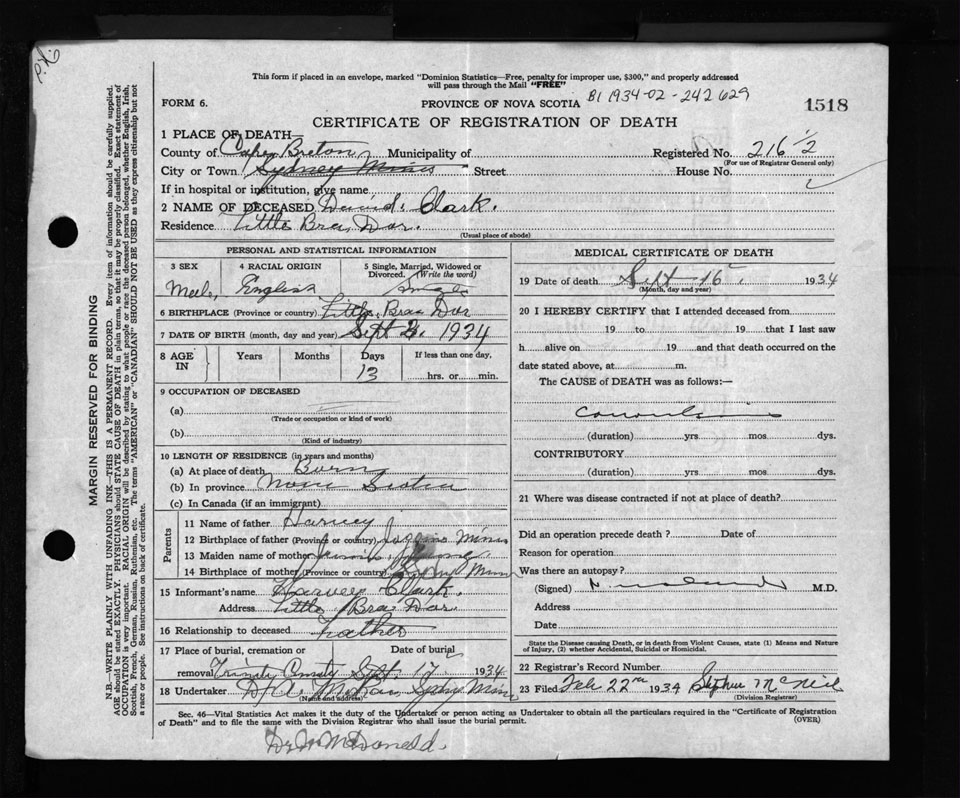 This form if placed in an envelope, marked "Dominion Statistics—Free, penalty for improper use, $300," and properly addressed
will pass through the Mail "FREE"
FORM 6.
PROVINCE OF NOVA SCOTIA
B1 1934-02-242629
1518
CERTIFICATE OF REGISTRATION OF DEATH
1 PLACE OF DEATH—
County of Cape Breton Municipality of Registered No. 216 1/2
(For use of Registrar General only)
City or Town Sydney Mines Street House No.
If in hospital or institution, give name
2 NAME OF DECEASED David. Clark.
Residence Little Bras Dor.
(Usual place of abode)
PERSONAL AND STATISTICAL INFORMATION
3 SEX 4 RACIAL ORIGIN 5 Single, Married, Widowed or Divorced. (Write the word)
English Single
6 BIRTHPLACE (Province or country) Little Bras Dor
7 DATE OF BIRTH (month, day and year) Sept 3. 1934
8 AGE IN Years Months Days If less than one day,
13 hrs. or min.
9 OCCUPATION OF DECEASED
(a)
(Trade or occupation or kind of work)
(b)
(Kind of industry)
10 LENGTH OF RESIDENCE (in years and months)
(a) At place of death Born
(b) In province Nova Scotia
(c) In Canada (if an immigrant)
Parents
11 Name of father Harvey
12 Birthplace of father (Province or country) Joggins Mines
13 Maiden name of mother
14 Birthplace of mother (Province or country) Syd Mines
15 Informant's name Harvey Clark.
Address Little Bras Dor.
16 Relationship to deceased Father
17 Place of burial, cremation or removal Date of burial
Trinity Cemetry Sept. 17 1934
18 Undertaker Sydney Mines
(Name and address)
MEDICAL CERTIFICATE OF DEATH
19 Date of death Sept 16 1934
(Month, day and year)
20 I HEREBY CERTIFY that I attended deceased from
19 to 19 that I last saw
h alive on 19 and that death occurred on the
date stated above, at m.
The CAUSE of DEATH was as follows:—
Convulsions
(duration) yrs. mos. dys.
CONTRIBUTORY
(duration) yrs. mos. dys.
21 Where was disease contracted if not at place of death?
Did an operation precede death? Date of
Reason for operation
Was there an autopsy?
(Signed) M.D.
Address
Date
State the Disease causing Death, or in death from Violent Causes, state (1) Means and Nature
of Injury, (2) whether Accidental, Suicidal or Homicidal.
22 Registrar's Record Number
23 Filed Feb 22nd 1934 Stephen McNeil
(Division Registrar)
Sec. 46—Vital Statistics Act makes it the duty of the Undertaker or person acting as Undertaker to obtain all the particulars required in the "Certificate of Registration
of Death" and to file the same with the Division Registrar who shall issue the burial permit.
(OVER)
McDonald
MARGIN RESERVED FOR BINDING
N.B.—WRITE PLAINLY WITH UNFADING INK—THIS IS A PERMANENT RECORD. Every item of information should be carefully supplied.
AGE should be stated EXACTLY. PHYSICIANS should STATE CAUSE OF DEATH in plain terms, so that it may be properly classified. Exact statement of
OCCUPATION is very important. RACIAL ORIGIN will be described by stating to what people or race the deceased person belonged, whether English, Irish,
Scottish, French, German, Russian, Ruthenian, etc. The terms "AMERICAN" or "CANADIAN" SHOULD NOT BE USED as they express citizenship but not
a race or people. See instructions on back of certificate.